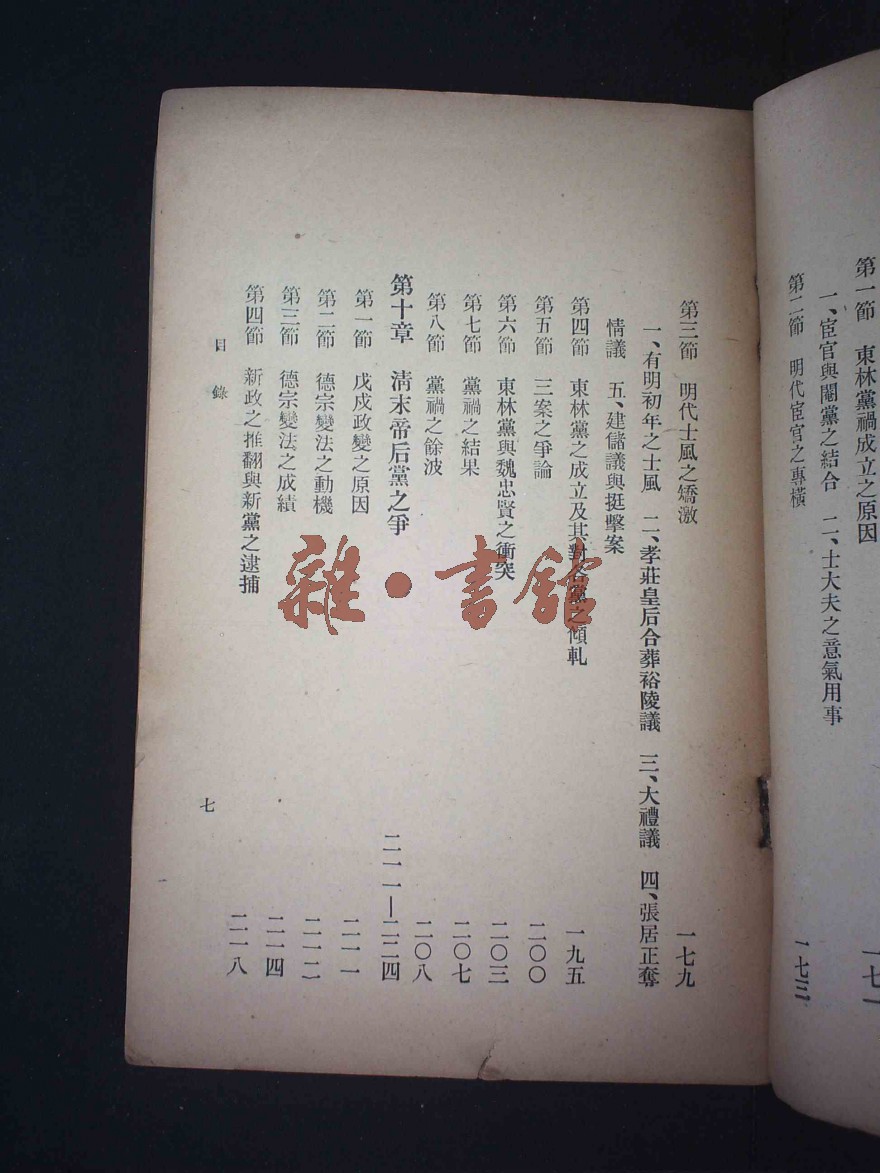 第一節　東林黨禍成立之原因　一七一
一、宦官與閹黨之結合　二、士大夫之意氣用事
第二節　明代宦官之專橫　一七三
第三節　明代士風之矯激　一七九
一、有明初年之士風　二、孝莊皇后合葬裕陵議　三、大禮議　四、張居正奪
情議　五、建儲議與挺擊案
第四節　東林黨之成立及其對各黨之傾軋　一九五
第五節　三案之爭論　二〇〇
第六節　東林黨與魏忠賢之衝突　二〇三
第七節　黨禍之結果　二〇七
第八節　黨禍之餘波　二〇八
第十章　清末帝后黨之爭　二一一—二二四
第一節　戊戌政變之原因　二一一
第二節　德宗變法之動機　二一二
第三節　德宗變法之成績　二一四
第四節　新政之推翻與新黨之逮捕　二一八
目錄　七
雜·書館